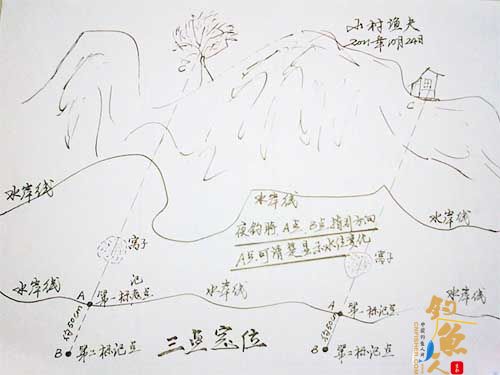 小村渔夫
2011年10月24日
C
C
水岸线
水岸线
水岸线
夜钓时 A点、B点指引方向
A点可清楚显示水位变化
窝子
窝子
水岸线
A
记
第一标点
水岸线
A
第一标记点
水岸线
约50cm
约50cm
B
第二标记点
三点定位
B
第二标记点
钓鱼人
CNFISHER.COM